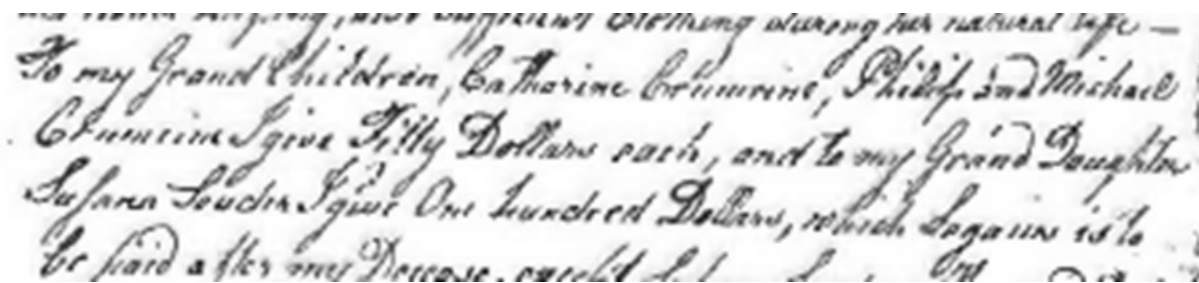 sufficient Clothing during her natural life —
To my Grand Children, Catharine Crumrine, Philip and Michael
Crumrine I give Fifty Dollars each, and to my Grand Daughter
Susana I give One hundred Dollars, which is to
be paid after my Decease, except